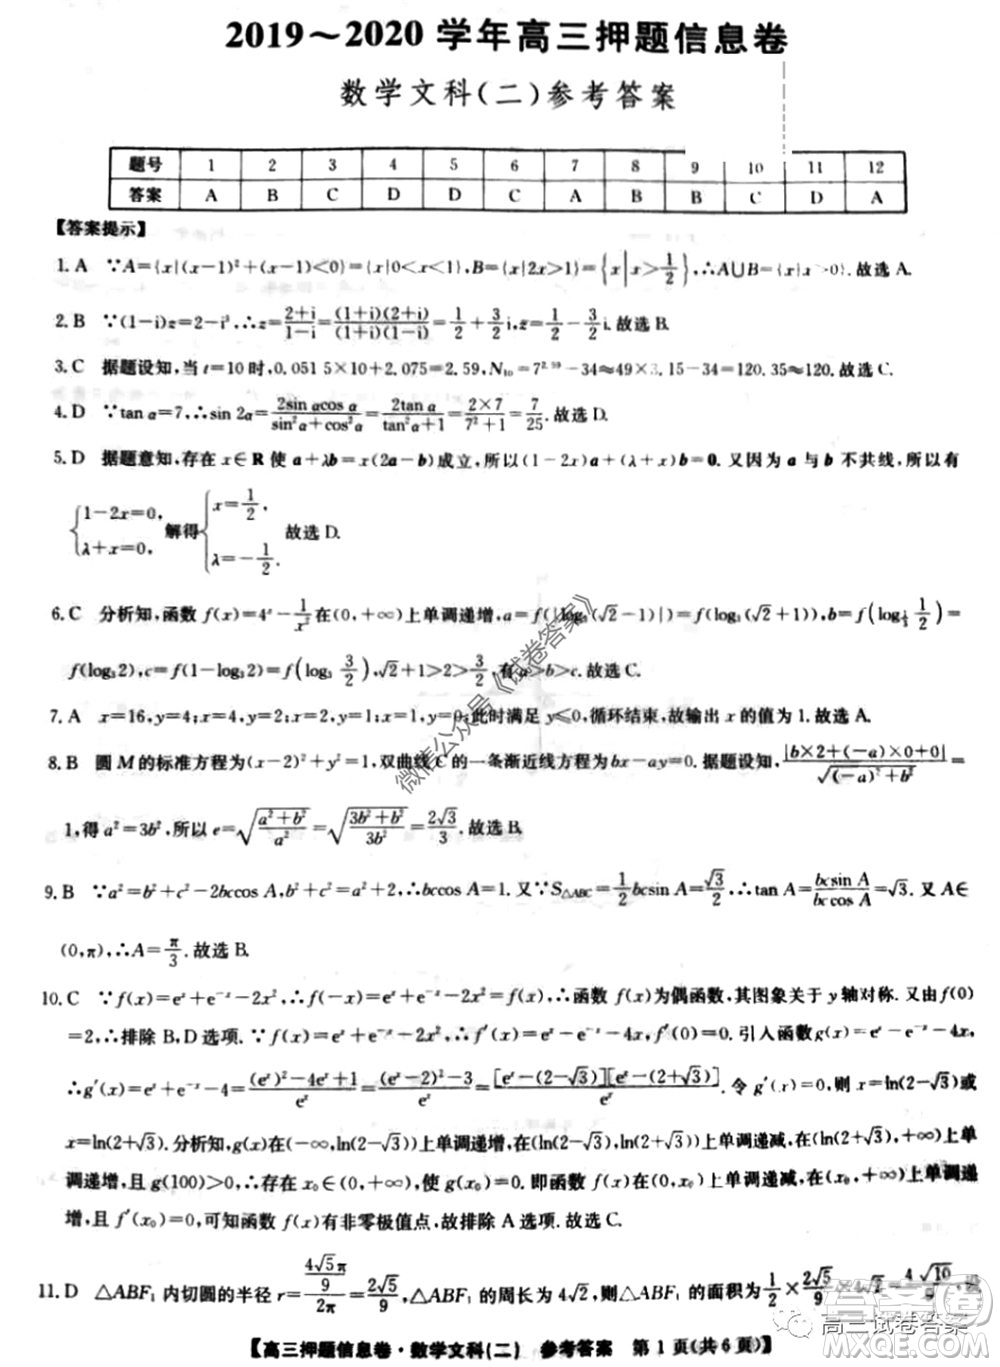 2019～2020 学年高三押题信息卷
数学文科(二)参考答案
题号 1 2 3 4 5 6 7 8 9 10 11 12
答案 A B C D D C A B B C D A
【答案提示】
1. A ∵A={x|(x-1)²+(x-1)<0}={x|0<x<1},B={x|2x>1}={x|x>1/2},∴A∪B={x|x>0}.故选 A.
2. B ∵(1-i)z=2-i³,∴z=(2+i)/(1-i)=(1+i)(2+i)/(1+i)(1-i)=1/2+3/2i,z̄=1/2-3/2i.故选 B.
3. C 据题设知,当 t=10 时,0.051 5×10+2.075=2.59,N₁₀=7^2.59-34≈49×3.15-34≈120.故选 C.
4. D ∵tan α=7,∴sin 2α=2sin αcos α/(sin²α+cos²α)=2tan α/(tan²α+1)=2×7/(7²+1)=7/25.故选 D.
5. D 据题意知,存在 x∈R 使 a+λb=x(2a-b)成立,所以(1-2x)a+(λ+x)b=0. 又因为 a 与 b 不共线,所以有
{1-2x=0, λ+x=0, 解得{x=1/2, λ=-1/2. 故选 D.
6. C 分析知,函数 f(x)=4ˣ-1/x²在(0,+∞)上单调递增,a=f(|log₃(√2-1)|)=f(log₃(√2+1)),b=f(log_{1/3} 1/2)=
f(log₃2),c=f(1-log₃2)=f(log₃ 3/2),√2+1>2>3/2,有 a>b>c.故选 C.
7. A x=16,y=4;x=4,y=2;x=1,y=0;此时满足 y≤0,循环结束,故输出 x 的值为 1.故选 A.
8. B 圆 M 的标准方程为(x-2)²+y²=1,双曲线 C 的一条渐近线方程为 bx-ay=0. 据题设知,|b×2+(-a)×0+0|/√((-a)²+b²)=
1,得 a²=3b²,所以 e=√((a²+b²)/a²)=√((3b²+b²)/3b²)=2√3/3.故选 B.
9. B ∵a²=b²+c²-2bccos A,b²+c²=a²+2,∴bccos A=1. 又∵S△ABC=1/2bcsin A=√3/2,∴tan A=bcsin A/bccos A=√3. 又 A∈
(0,π),∴A=π/3.故选 B.
10. C ∵f(x)=eˣ+e⁻ˣ-2x²,∴f(-x)=eˣ+e⁻ˣ-2x²,∴f(-x)=f(x),∴函数 f(x)为偶函数,其图象关于 y 轴对称. 又由 f(0)
=2,∴排除 B,D 选项. ∵f(x)=eˣ+e⁻ˣ-2x²,∴f′(x)=eˣ-e⁻ˣ-4x,f′(0)=0. 引入函数 g(x)=eˣ-e⁻ˣ-4x,
∴g′(x)=eˣ+e⁻ˣ-4=((eˣ)²-4eˣ+1)/eˣ=((eˣ-2)²-3)/eˣ=[eˣ-(2-√3)][eˣ-(2+√3)]/eˣ. 令 g′(x)=0,则 x=ln(2-√3)或
x=ln(2+√3).分析知,g(x)在(-∞,ln(2-√3))上单调递增,在(ln(2-√3),ln(2+√3))上单调递减,在(ln(2+√3),+∞)上单
调递增,且 g(100)>0,∴存在 x₀∈(0,+∞),使 g(x₀)=0. 即函数 f(x)在(0,x₀)上单调递减,在(x₀,+∞)上单调递
增,且 f′(x₀)=0,可知函数 f(x)有非零极值点. 故排除 A 选项. 故选 C.
11. D △ABF₁ 内切圆的半径 r=(4√5π/9)/2π=2√5/9,△ABF₁ 的周长为 4√2,△ABF₁ 的面积为 1/2×2√5/9×4√2=4√10/9,设
【高三押题信息卷·数学文科(二) 参考答案 第 1 页(共 6 页)】
微信公众号《试卷答案》
高三试卷答案